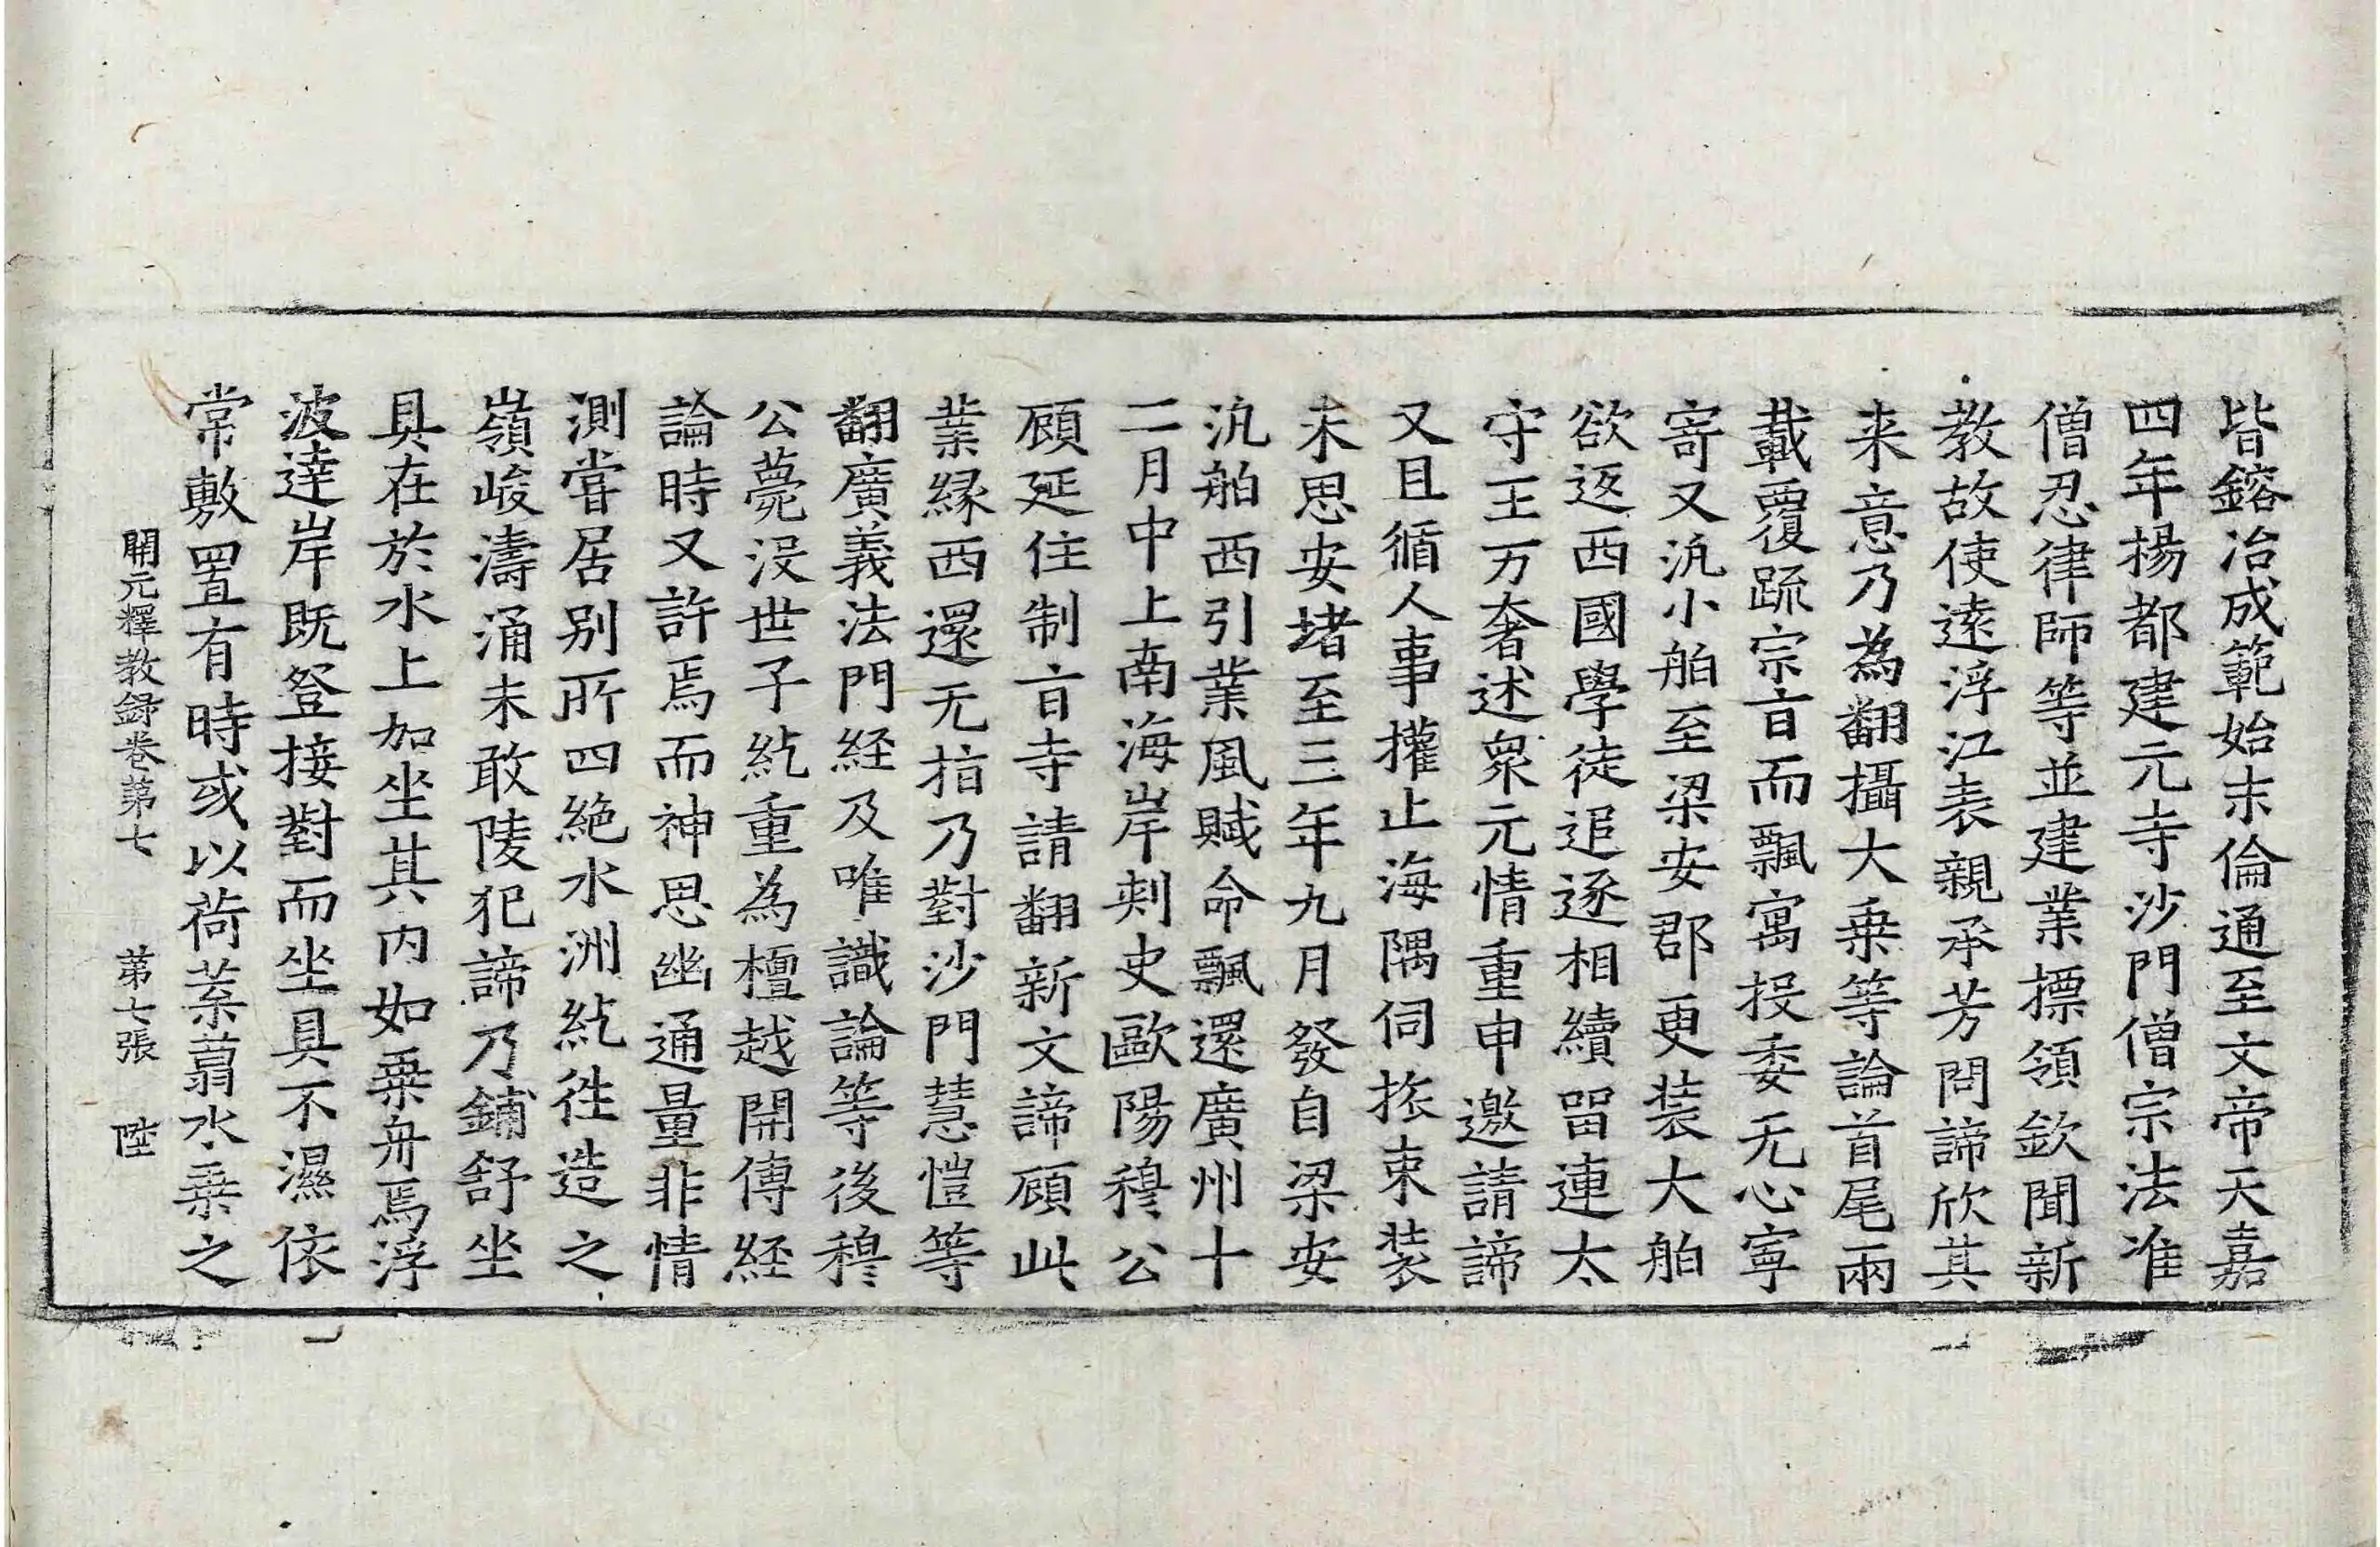 皆鎔冶成範始末倫通至文帝天嘉
四年揚都建元寺沙門僧宗法准
僧忍律師等並建業摽領欽聞新
教故使遠浮江表親承芳問諦欣其
来意乃為翻攝大乗等論首尾兩
載覆疏宗旨而飄寓投委无心寧
寄又汎小舶至梁安郡更装大舶
欲返西國學徒追逐相續留連太
守王万奢述衆元情重申邀請諦
又且循人事權止海隅伺旅束装
未思安堵至三年九月發自梁安
汎舶西引業風賦命飄還廣州十
二月中上南海岸刺史歐陽穆公
頠延住制旨寺請翻新文諦顧此
業縁西還无指乃對沙門慧愷等
翻廣義法門経及唯識論等後穆
公薨没世子紇重為檀越開傳経
論時又許焉而神思幽通量非情
測嘗居别所四絶水洲紇往造之
嶺峻濤涌未敢陵犯諦乃鋪舒坐
具在於水上加坐其内如乗舟焉浮
波達岸既登接對而坐具不濕依
常敷置有時或以荷葉蓊水乗之
開元釋教録卷第七　第七張　陞